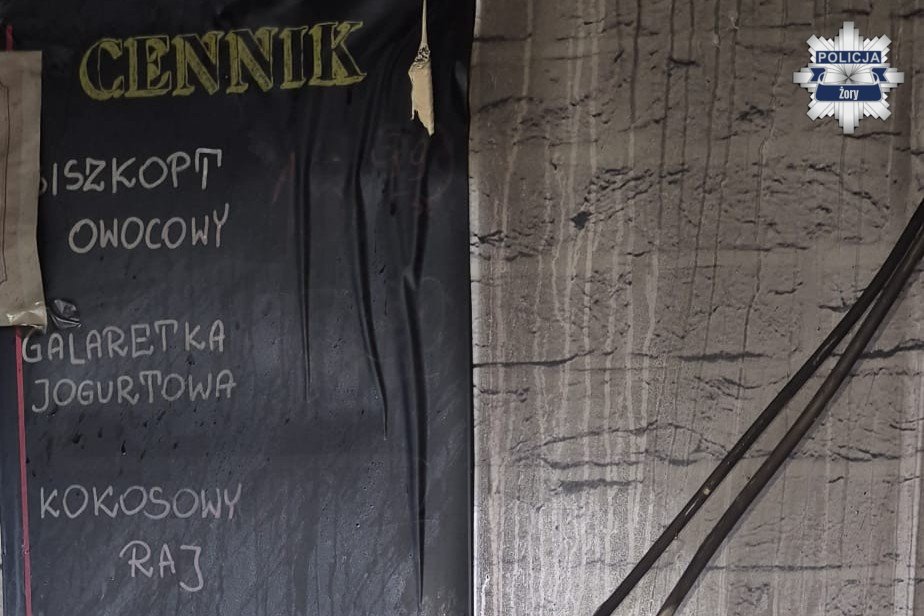 CENNIK
BISZKOPT
OWOCOWY
GALARETKA
JOGURTOWA
KOKOSOWY
RAJ
POLICJA
Żory